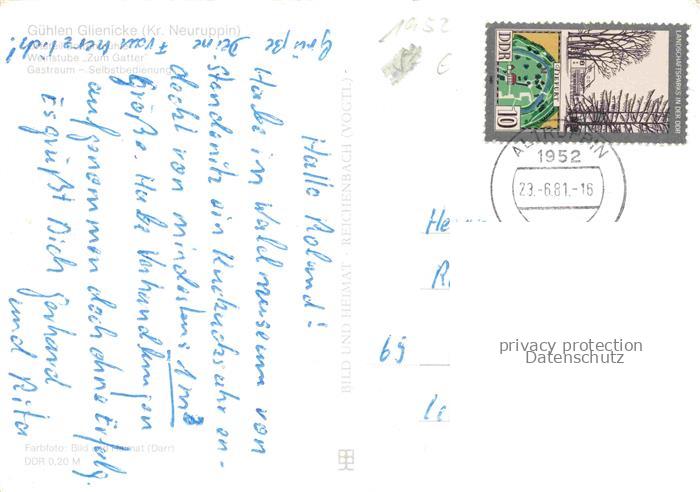 Gühlen Glienicke (Kr. Neuruppin)
Weinstube „Zum Gatter“
Gastraum – Selbstbedienung
Grüße Deine Frau herzlich!
Hallo Roland!
Habe im Waldmuseum von
Stendenitz ein Kuckucksuhr en-
deckt von mindestens 1 m³
Größe. Habe Verhandlungen
aufgenommen doch ohne Erfolg.
Es grüßt Dich Gerhard
und Rita
Farbfoto: Bild und Heimat (Darr)
DDR 0,20 M
BILD UND HEIMAT · REICHENBACH (VOGTL)
1952
6
DDR
10
LANDSCHAFTSPARKS IN DER DDR
ALTRUPPIN
1952
23.-6.81.-16
69
privacy protection
Datenschutz